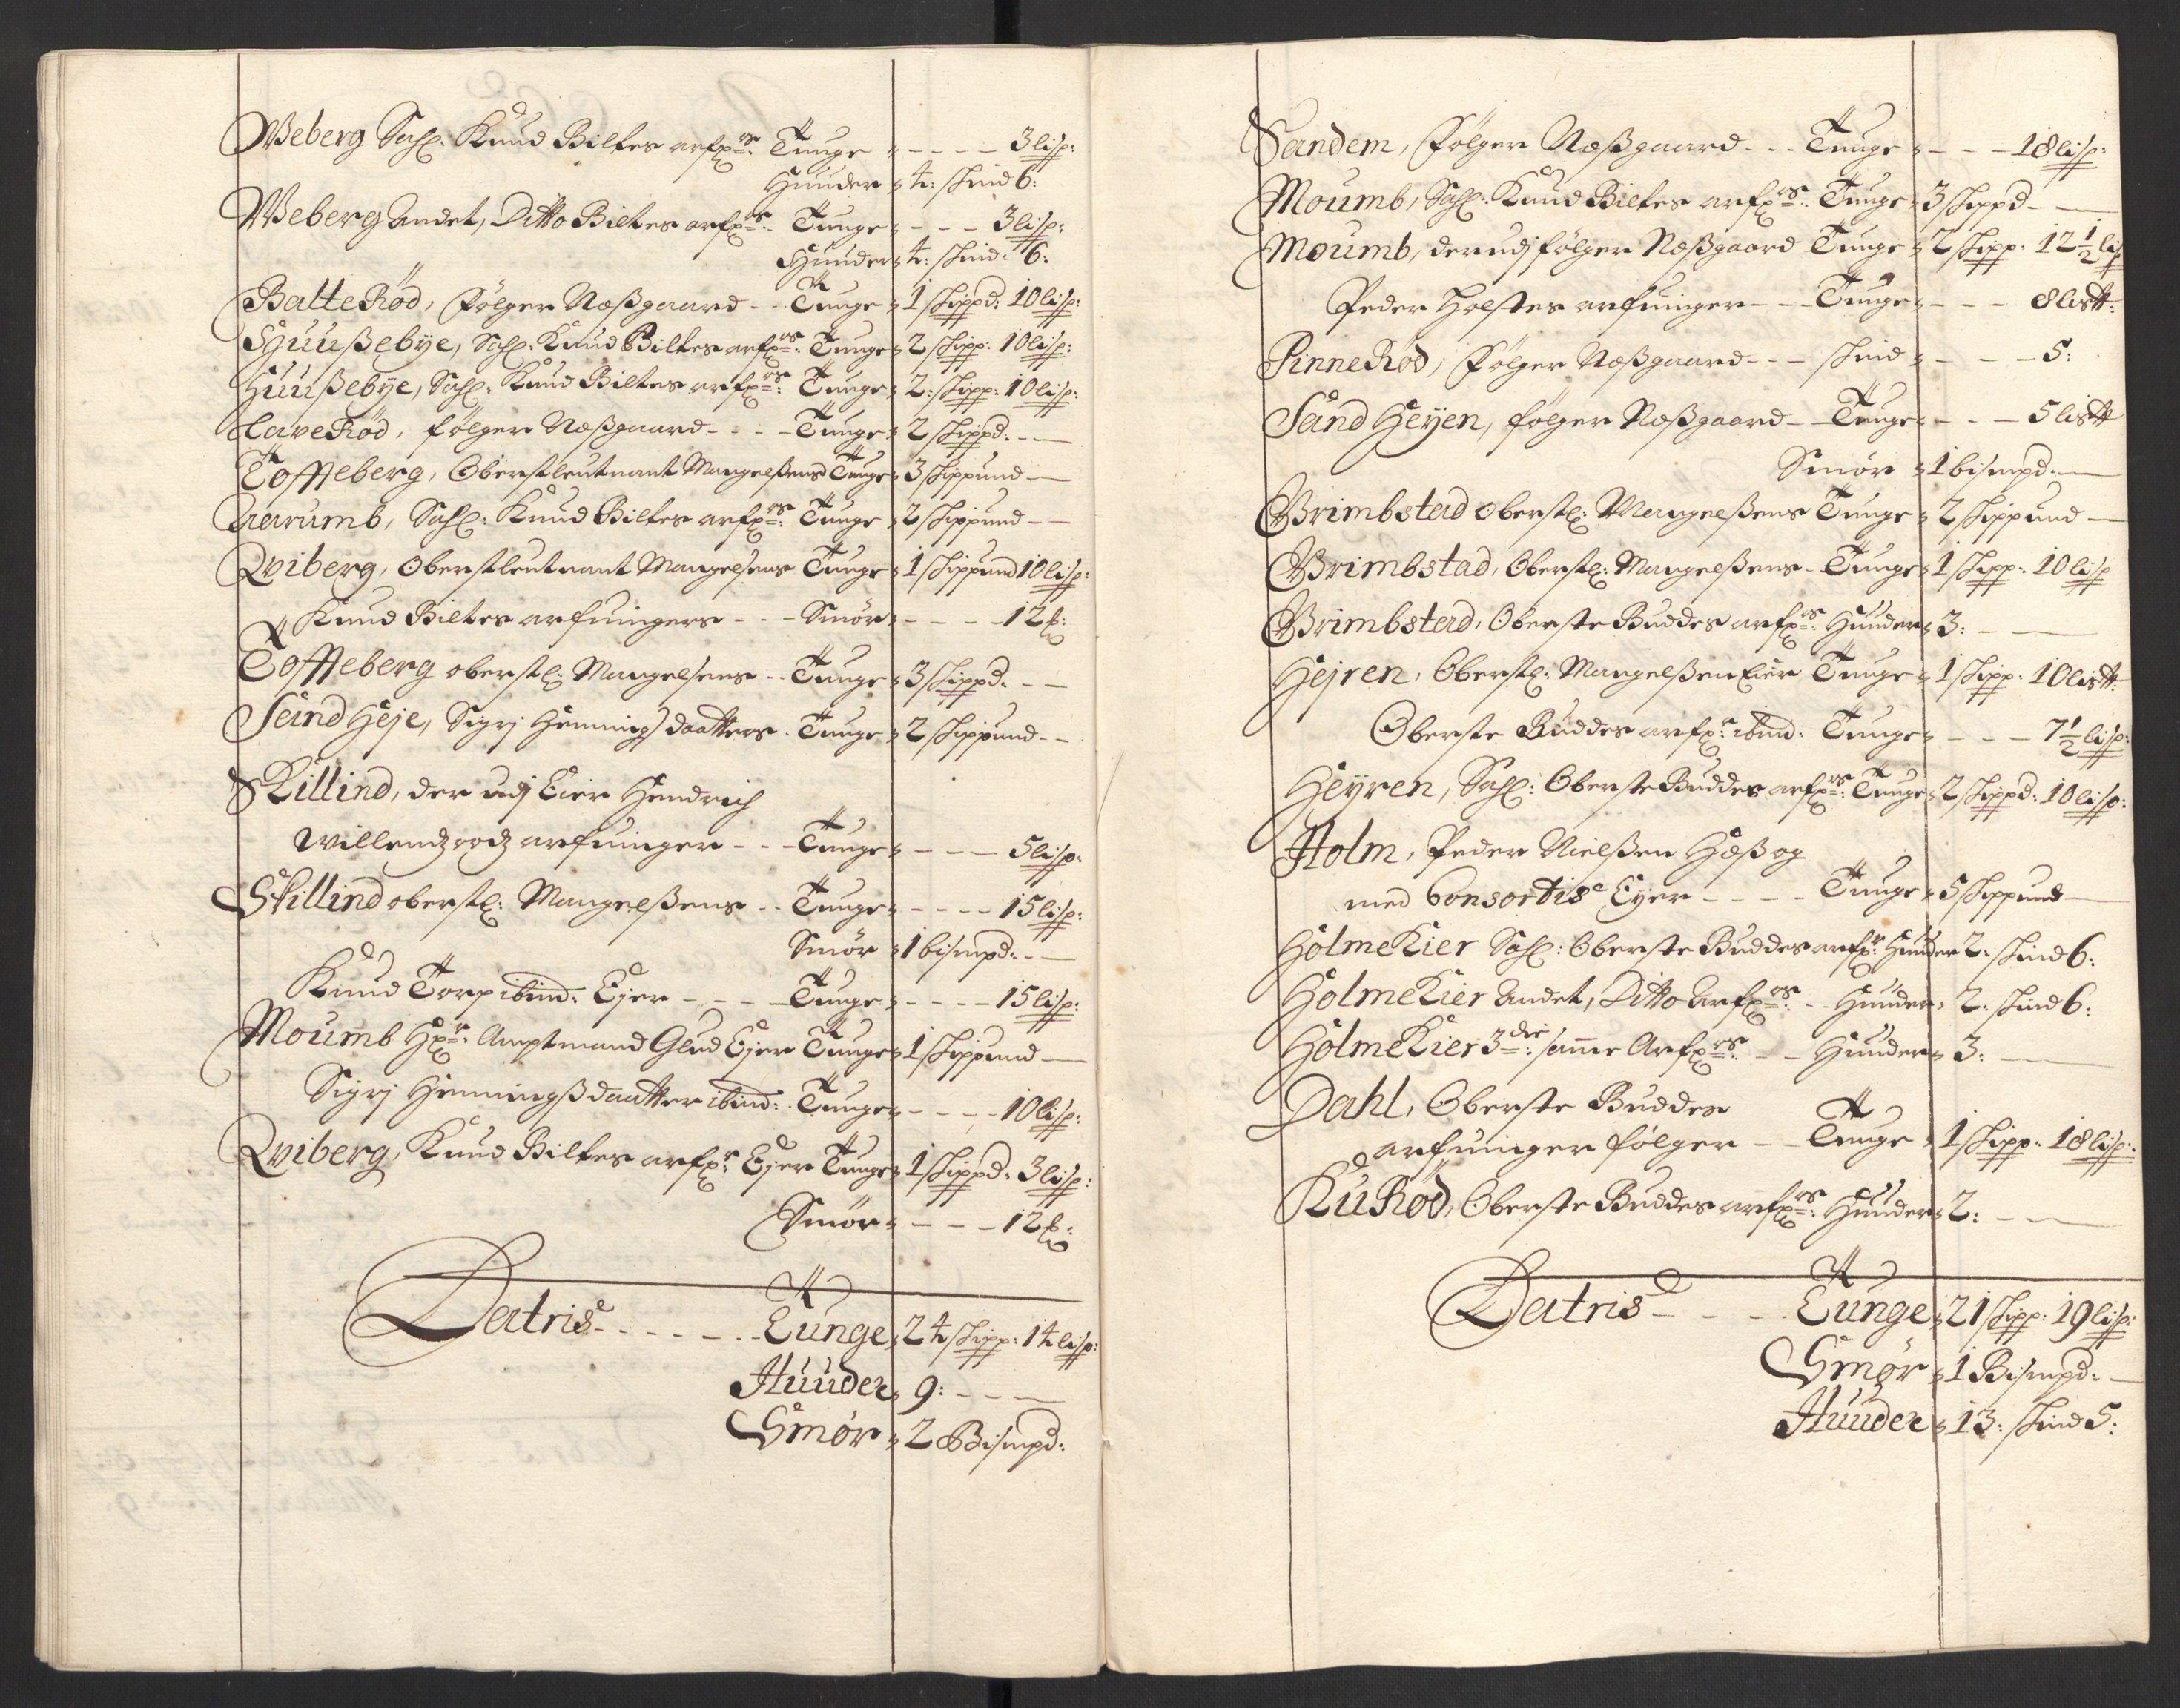 Weberg Sahl: Knud Biltes arfr: Tunge - - - - 3 lisp:
Huuder 4: skind 6:
Weberg andet, Ditto Biltes arfrs: Tunge - - - 3 lisp:
Huuder 4: skind: 6:
BalteRød, følger Næßgaard - - Tunge 1 skippd: 10 lisp:
Huußebye, Sahl: Knud Biltes arfrs: Tunge 2 skipp: 10 lisp:
Huußebye, Sahl: Knud Biltes arfrs: Tunge 2: skipp: 10 lisp:
ClaveRød, følger Næßgaard - - - Tunge 2 skippd: - -
Toffteberg, Oberstleutnant Mangelßens Tunge 3 skippund -
Aarumb, Sahl: Knud Biltes arfrs: Tunge 2 skippund - -
Qviberg, Oberstleutnant Mangelsens Tunge 1 skippund 10 lisp:
Knud Biltes arfuingers - - - Smør - - - - 12 ℔:
Toffteberg oberstl: Mangelsens - - Tunge 3 skippd: - -
Sand Heje, Sigrj Hennings daatters - Tunge 2 skippund - -
Skillind, der udj Eier Hendrich
arfuinger - - - Tunge - - - 5 lisp:
Skillind oberstl: Mangelßens - - Tunge - - - - 15 lisp:
Smør 1 bismpd: - -
Knud Torp ibind: Ejer - - - Tunge - - - - 15 lisp:
Moumb Hr: Amptmand Glud Ejer Tunge 1 skippund -
Sigrj Henningßdaatter ibind: - Tunge - - - - 10 lisp:
Qviberg, Knud Biltes arfr: Ejer Tunge 1 skippd: 3 lisp:
Smør - - - 12 ℔:
Latris - - - - - - Tunge 24 skipp: 14 lisp:
Huuder 9: - - -
Smør 2 Bismpd:
Sandem, følger Næßgaard - - - Tunge - - - 18 lisp:
Moumb, Sahl: Knud Biltes arfrs: Tunge 3 skippd - -
Moumb, der udj følger Næßgaard Tunge 2 skipp: 12½ lisp
Peder Holstes arfuinger - - - Tunge - - - 8 lis℔:
PinneRød, følger Næßgaard - - - skind - - - - 5:
Sand Heyen, følger Næßgaard - - Tunge - - - 5 lis℔
Smør 1 bismpd: -
Brimbstad oberstl: Mangelßens Tunge 2 skippund -
Brimbstad, Oberstl: Mangelßens - Tunge 1 skipp: 10 lisp
Brimbstad, Oberste Buddes arfrs: Huuder 3: - -
Hejren, Oberstl: Mangelßen Eier Tunge 1 skipp: 10 lis℔:
Oberste Buddes arfr: ibind: Tunge - - - 7½ lisp:
Heyren, Sahl: Oberste Buddes arfrs: Tunge 2 skippd: 10 lisp:
Holm, Peder Nielßen Heß og
med Consortis Eyer - - - - Tunge 5 skippund -
HolmeKier Sahl: Oberste Buddes arfr: Huuder 2: skind 6:
HolmeKier andet, Ditto Arfrs: - - Huuder 2: skind 6:
HolmeKier 3die: samme Arfrs: - - Huuder 3: -
Dahl, Oberste Buddes
arfuinger følger - - Tunge 1 skipp: 18 lisp:
KuRød, Oberste Buddes arfrs: Huuder 2: - -
Latris - - - - Tunge 21 skipp: 19 lisp:
Smør 1 Bismpd: -
Huuder 13: skind 5: